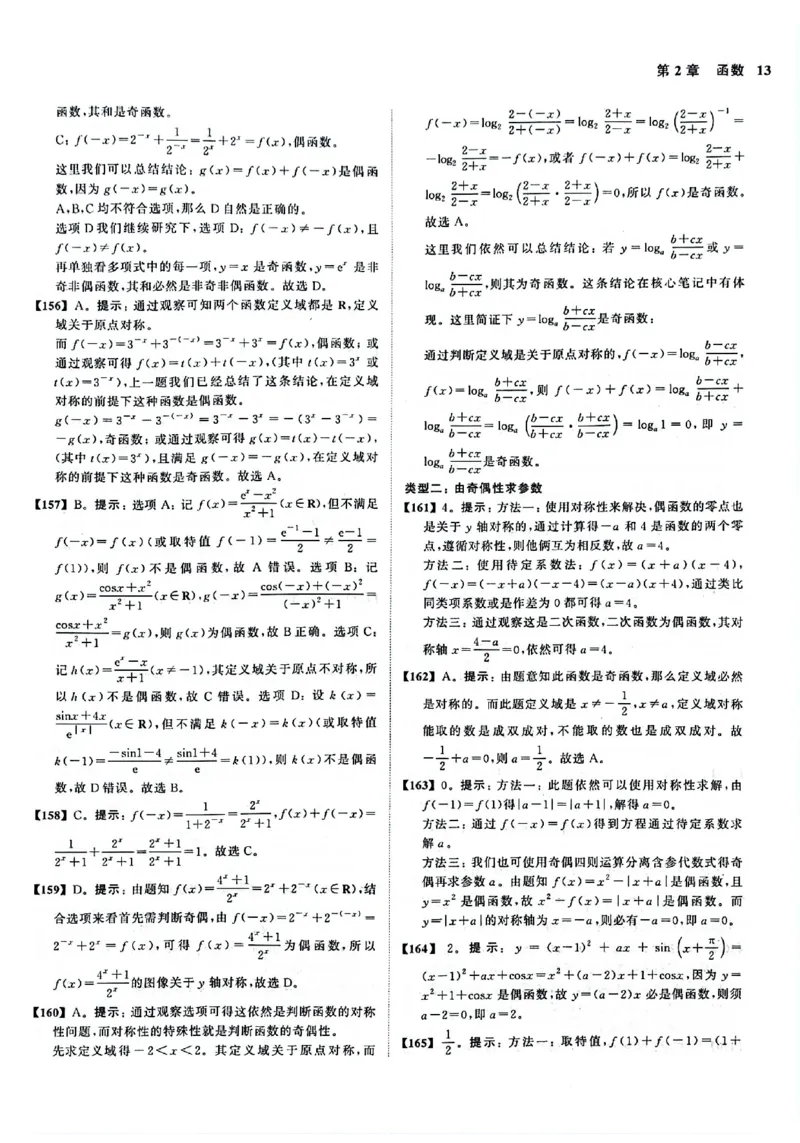 第 2 章 函数 13
函数,其和是奇函数。
C: f(-x)=2^{-x}+\frac{1}{2^{-x}}=\frac{1}{2^x}+2^x=f(x),偶函数。
这里我们可以总结结论:g(x)=f(x)+f(-x)是偶函
数,因为 g(-x)=g(x)。
A,B,C 均不符合选项,那么 D 自然是正确的。
选项 D 我们继续研究下,选项 D: f(-x)≠-f(x),且
f(-x)≠f(x)。
再单独看多项式中的每一项,y=x 是奇函数,y=e^x 是非
奇非偶函数,其和必然是非奇非偶函数。故选 D。
【156】A。提示:通过观察可知两个函数定义域都是 R,定义
域关于原点对称。
而 f(-x)=3^{-x}+3^{-(-x)}=3^{-x}+3^x=f(x),偶函数;或
通过观察可得 f(x)=t(x)+t(-x),(其中 t(x)=3^x 或
t(x)=3^{-x}),上一题我们已经总结了这条结论,在定义域
对称的前提下这种函数是偶函数。
g(-x)=3^{-x}-3^{-(-x)}=3^{-x}-3^x=-(3^x-3^{-x})=
-g(x),奇函数;或通过观察可得 g(x)=t(x)-t(-x),
(其中 t(x)=3^x),且满足 g(-x)=-g(x),在定义域对
称的前提下这种函数是奇函数。故选 A。
【157】B。提示:选项 A:记 f(x)=\frac{e^x-x^2}{x^2+1}(x∈R),但不满足
f(-x)=f(x)(或取特值 f(-1)=\frac{e^{-1}-1}{2}≠\frac{e-1}{2}=
f(1)),则 f(x)不是偶函数,故 A 错误。选项 B:记
g(x)=\frac{cosx+x^2}{x^2+1}(x∈R),g(-x)=\frac{cos(-x)+(-x)^2}{(-x)^2+1}=
\frac{cosx+x^2}{x^2+1}=g(x),则 g(x)为偶函数,故 B 正确。选项 C:
记 h(x)=\frac{e^x-x}{x+1}(x≠-1),其定义域关于原点不对称,所
以 h(x)不是偶函数,故 C 错误。选项 D:设 k(x)=
\frac{sinx+4x}{e^{|x|}}(x∈R),但不满足 k(-x)=k(x)(或取特值
k(-1)=\frac{-sin1-4}{e}≠\frac{sin1+4}{e}=k(1)),则 k(x)不是偶函
数,故 D 错误。故选 B。
【158】C。提示:f(-x)=\frac{1}{1+2^{-x}}=\frac{2^x}{2^x+1},f(x)+f(-x)=
\frac{1}{2^x+1}+\frac{2^x}{2^x+1}=\frac{2^x+1}{2^x+1}=1。故选 C。
【159】D。提示:由题知 f(x)=\frac{4^x+1}{2^x}=2^x+2^{-x}(x∈R),结
合选项来看首先需判断奇偶,由 f(-x)=2^{-x}+2^{-(-x)}=
2^{-x}+2^x=f(x),可得 f(x)=\frac{4^x+1}{2^x}为偶函数,所以
f(x)=\frac{4^x+1}{2^x}的图像关于 y 轴对称,故选 D。
【160】A。提示:通过观察选项可得这依然是判断函数的对称
性问题,而对称性的特殊性就是判断函数的奇偶性。
先求定义域得-2<x<2。其定义域关于原点对称,而
f(-x)=log_2\frac{2-(-x)}{2+(-x)}=log_2\frac{2+x}{2-x}=log_2(\frac{2-x}{2+x})^{-1}=
-log_2\frac{2-x}{2+x}=-f(x),或者 f(-x)+f(x)=log_2\frac{2-x}{2+x}+
log_2\frac{2+x}{2-x}=log_2(\frac{2-x}{2+x}·\frac{2+x}{2-x})=0,所以 f(x)是奇函数。
故选 A。
这里我们依然可以总结结论:若 y=log_a\frac{b+cx}{b-cx}或 y=
log_a\frac{b-cx}{b+cx},则其为奇函数。这条结论在核心笔记中有体
现。这里简证下 y=log_a\frac{b+cx}{b-cx}是奇函数:
通过判断定义域是关于原点对称的,f(-x)=log_a\frac{b-cx}{b+cx},
f(x)=log_a\frac{b+cx}{b-cx},则 f(-x)+f(x)=log_a\frac{b-cx}{b+cx}+
log_a\frac{b+cx}{b-cx}=log_a(\frac{b-cx}{b+cx}·\frac{b+cx}{b-cx})=log_a1=0,即 y=
log_a\frac{b+cx}{b-cx}是奇函数。
类型二:由奇偶性求参数
【161】4。提示:方法一:使用对称性来解决,偶函数的零点也
是关于 y 轴对称的,通过计算得-a 和 4 是函数的两个零
点,遵循对称性,则他俩互为相反数,故 a=4。
方法二:使用待定系数法:f(x)=(x+a)(x-4),
f(-x)=(-x+a)(-x-4)=(x-a)(x+4),通过类比
同类项系数或是作差为 0 都可得 a=4。
方法三:通过观察这是二次函数,二次函数为偶函数,其对
称轴 x=\frac{4-a}{2}=0,依然可得 a=4。
【162】A。提示:由题意知此函数是奇函数,那么定义域必然
是对称的。而此题定义域是 x≠-\frac{1}{2},x≠a,定义域对称
能取的数是成双成对,不能取的数也是成双成对。故
-\frac{1}{2}+a=0,则 a=\frac{1}{2}。故选 A。
【163】0。提示:方法一:此题依然可以使用对称性求解,由
f(-1)=f(1)得|a-1|=|a+1|,解得 a=0。
方法二:通过 f(-x)=f(x)得到方程通过待定系数求
解 a。
方法三:我们也可使用奇偶四则运算分离含参代数式得奇
偶再求参数 a。由题知 f(x)=x^2-|x+a|是偶函数,且
y=x^2 是偶函数,故 x^2-f(x)=|x+a|是偶函数。而
y=|x+a|的对称轴为 x=-a,则必有-a=0,即 a=0。
【164】2。提示:y=(x-1)^2+ax+sin(x+\frac{π}{2})=
(x-1)^2+ax+cosx=x^2+(a-2)x+1+cosx,因为 y=
x^2+1+cosx 是偶函数,故 y=(a-2)x 必是偶函数,则须
a-2=0,即 a=2。
【165】\frac{1}{2}。提示:方法一:取特值,f(1)+f(-1)=(1+